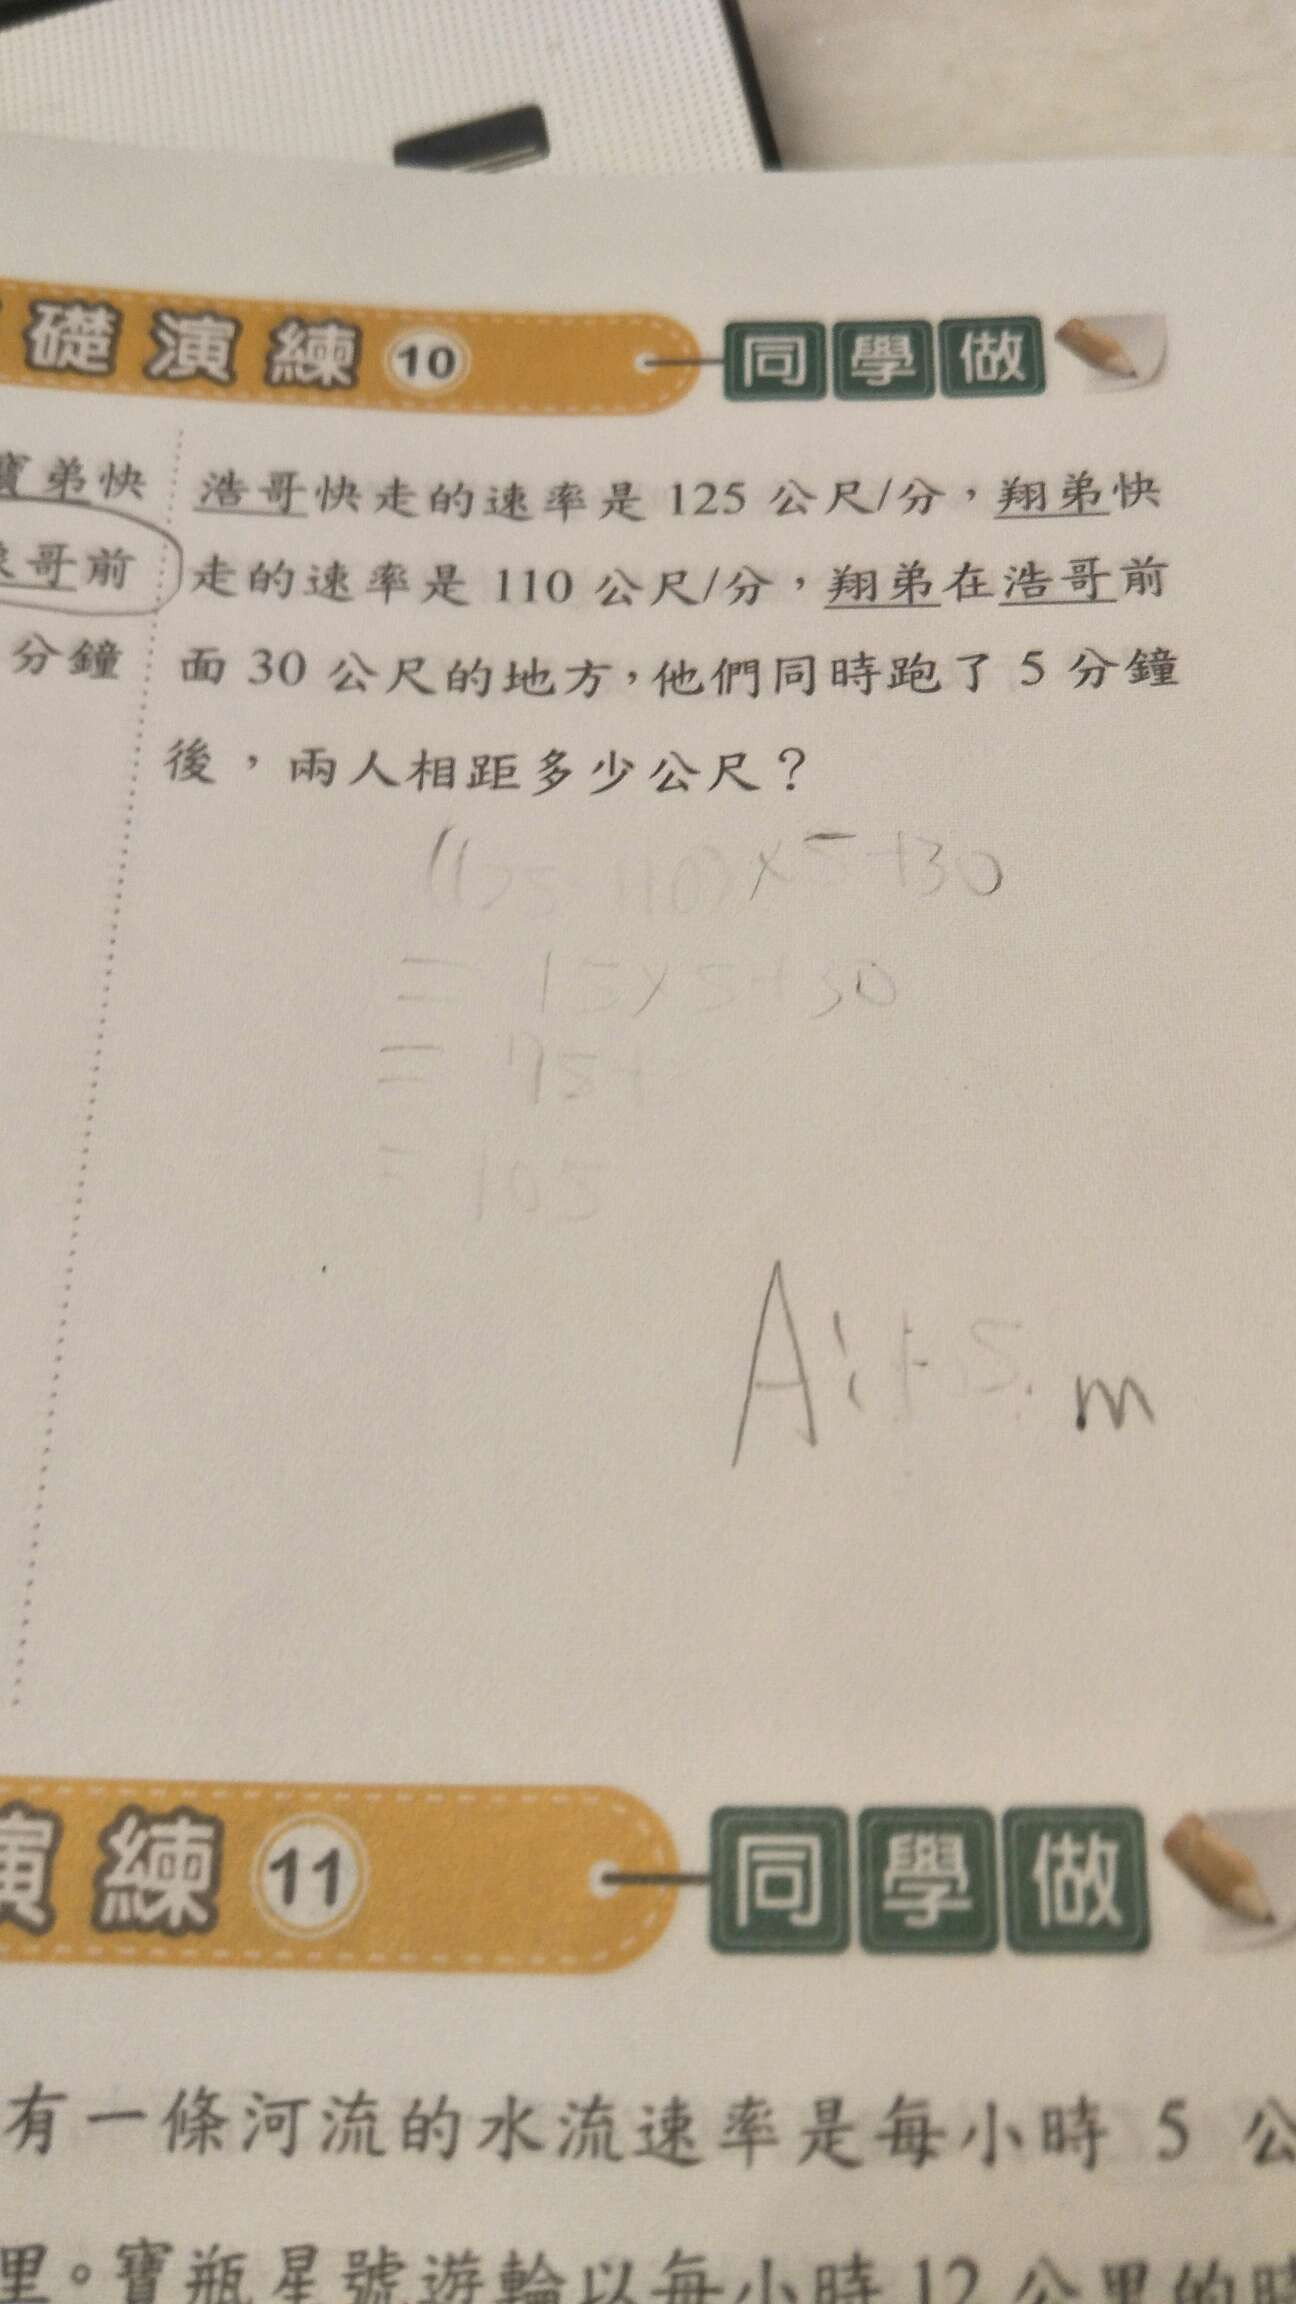 礎演練 10 同學做
寶弟快
哥前
分鐘
浩哥快走的速率是 125 公尺/分，翔弟快
走的速率是 110 公尺/分，翔弟在浩哥前
面 30 公尺的地方，他們同時跑了 5 分鐘
後，兩人相距多少公尺？
(125-110)×5+30
= 15×5+30
= 75+
= 105
A: m
演練 11 同學做
有一條河流的水流速率是每小時 5 公
里。寶瓶星號遊輪以每小時 12 公里的時